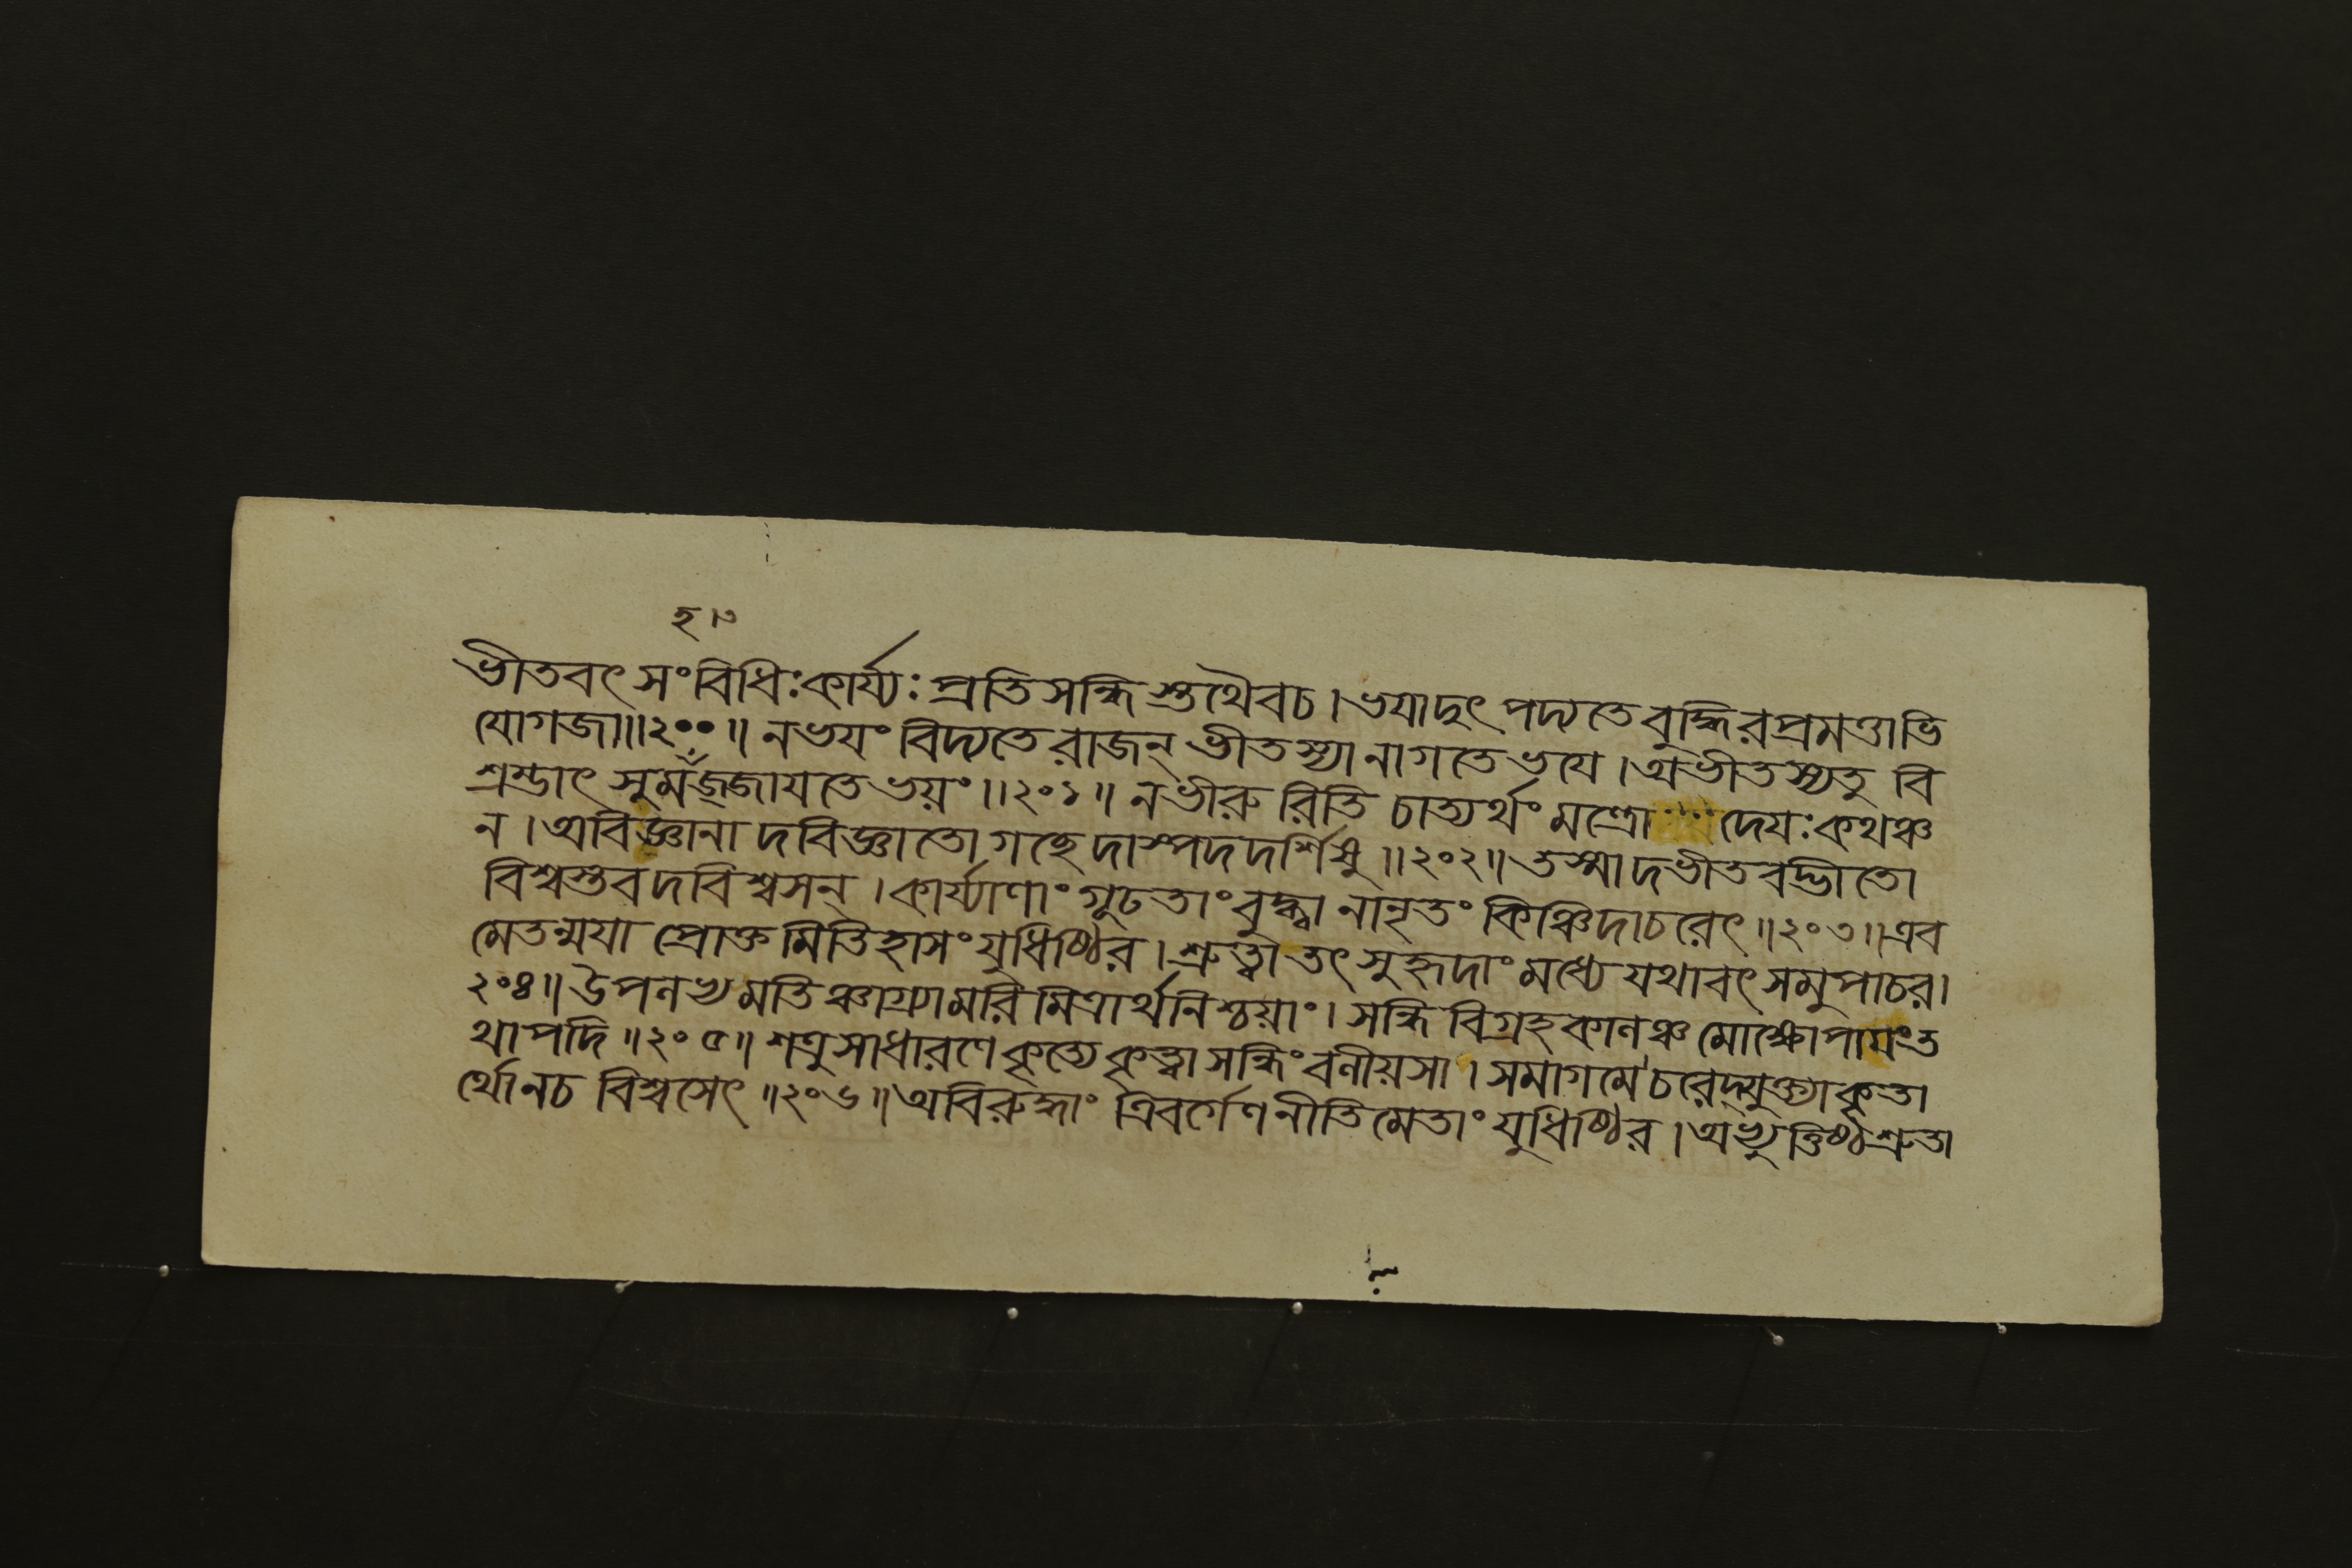 হ ৷৩
ভীতবৎ সংবিধিঃ কার্য্যঃ প্রতিসন্ধিস্তথৈবচ । ভযাদুৎপদ্যতে বুদ্ধিরপ্রমত্তাভি
যোগজা॥২০০॥ নভযং বিদ্যতে রাজন্ ভীতস্যানাগতে ভযে । অভীতস্যতু বি
শ্রম্ভাৎ সুমহজ্জাযতে ভয়ং॥২০১॥ নভীরুরিতি চাত্যর্থং মন্ত্রো দেযঃ কথঞ্চ
ন । অবিজ্ঞানাদবিজ্ঞাতো গচ্ছেদাস্পদদর্শিষু॥২০২॥ তস্মাদভীতবদ্ভীতো
বিশ্বস্তবদবিশ্বসন্ । কার্য্যাণাং গূঢতাং বুদ্ধ্বা নানৃতং কিঞ্চিদাচরেৎ॥২০৩॥ এব
মেতন্মযা প্রোক্তমিতিহাসং যুধিষ্ঠির । শ্রুত্বা তৎ সুহৃদাং মধ্যে যথাবৎ সমুপাচর।
২০৪॥ উপলভ্য মতিঞ্চাগ্র্যামরিমিত্রার্থনিশ্চয়াং । সন্ধিবিগ্রহকালঞ্চ মোক্ষোপায়ং ত
থাপদি॥২০৫॥ শত্রুসাধারণে কৃত্যে কৃত্বা সন্ধিং বলীয়সা । সমাগমে চরেদ্যুক্ত্যা কৃতা
র্থো নচ বিশ্বসেৎ॥২০৬॥ অবিরুদ্ধাং ত্রিবর্গেণ নীতিমেতাং যুধিষ্ঠির । অভ্যুত্তিষ্ঠ শ্রুতা